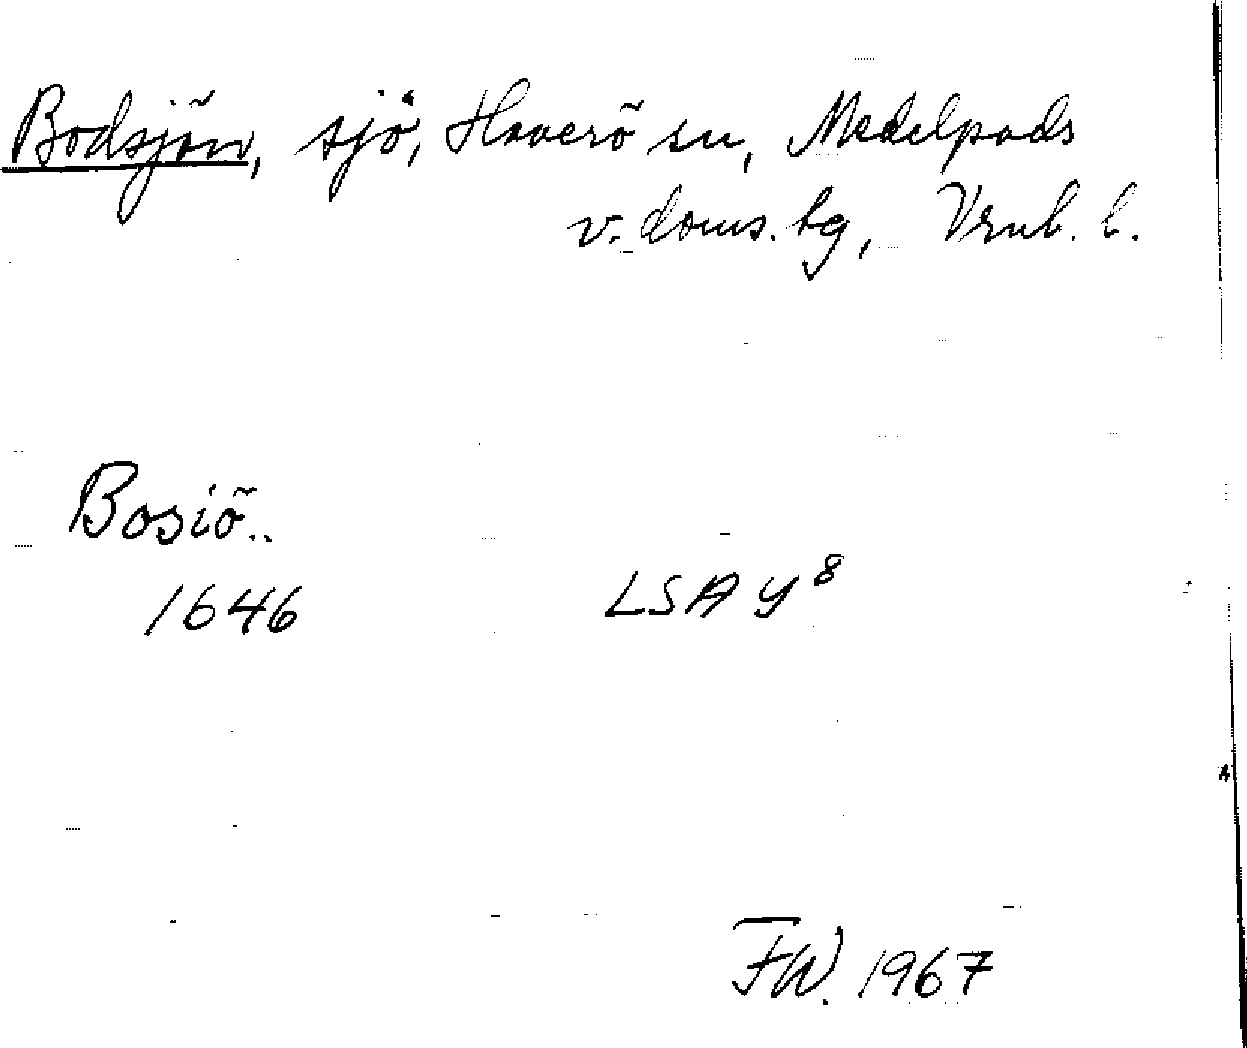 Bodsjön, sjö, Haverö sn, Medelpads
v. doms. tg, Vrnl. l.
Bosiö..
1646 LSA Y8
FW. 1967